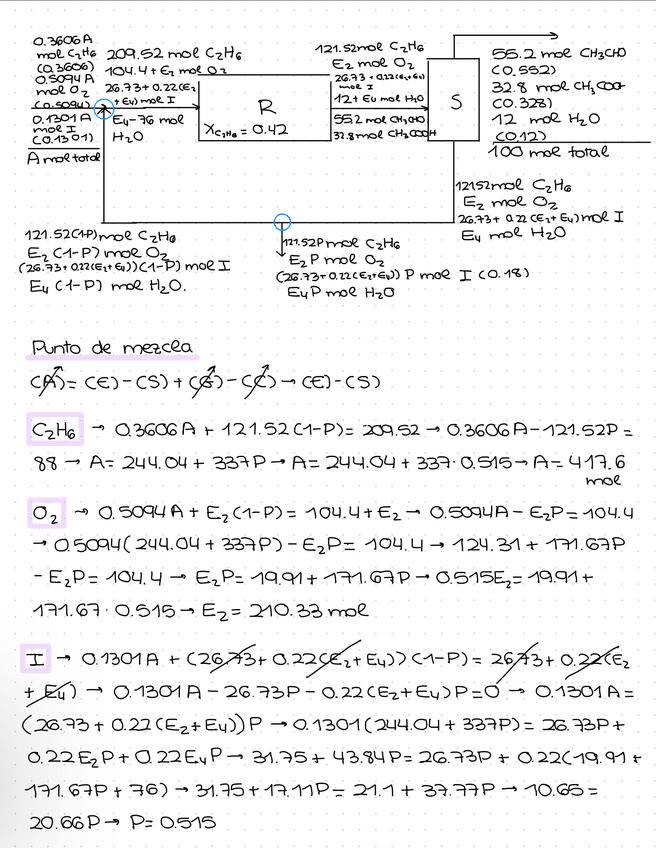 0.3606A
mol C₂H₆
(0.3606)
0.5094A
mol O₂
(0.5094)
0.1301A
mol I
(0.1301)
A mol total
209.52 mol C₂H₆
104.4 + E₂ mol O₂
26.73 + 0.22(E₂
+ E₄) mol I
E₄-76 mol
H₂O
R
X_C₂H₆ = 0.42
121.52mol C₂H₆
E₂ mol O₂
26.73 + 0.22(E₂+E₄)
mol I
12+E₄ mol H₂O
55.2 mol CH₃CHO
32.8mol CH₃COOH
S
55.2 mol CH₃CHO
(0.552)
32.8 mol CH₃COO-
(0.328)
12 mol H₂O
(0.12)
100 mol total
12152mol C₂H₆
E₂ mol O₂
26.73+ 0.22(E₂+E₄) mol I
E₄ mol H₂O
121.52(1-P) mol C₂H₆
E₂ (1-P) mol O₂
(26.73+0.22(E₂+E₄))(1-P) mol I
E₄ (1-P) mol H₂O.
121.52P mol C₂H₆
E₂P mol O₂
(26.73+ 0.22(E₂+E₄)) P mol I (0.18)
E₄P mol H₂O
Punto de mezcla
(A) = (E) - (S) + (G) - (C) → (E) - (S)
C₂H₆ → 0.3606A + 121.52 (1-P) = 209.52 → 0.3606A - 121.52P =
88 → A = 244.04 + 337P → A = 244.04 + 337·0.515 → A = 417.6
mol
O₂ → 0.5094A + E₂ (1-P) = 104.4 + E₂ → 0.5094A - E₂P = 104.4
→ 0.5094(244.04 + 337P) - E₂P = 104.4 → 124.31 + 171.67P
- E₂P = 104.4 → E₂P = 19.91 + 171.67P → 0.515E₂ = 19.91 +
171.67·0.515 → E₂ = 210.33 mol
I → 0.1301A + (26.73 + 0.22(E₂+E₄))(1-P) = 26.73 + 0.22(E₂
+ E₄) → 0.1301A - 26.73P - 0.22(E₂+E₄)P = 0 → 0.1301A =
(26.73 + 0.22(E₂+E₄))P → 0.1301(244.04 + 337P) = 26.73P +
0.22E₂P + 0.22E₄P → 31.75 + 43.84P = 26.73P + 0.22(19.91 +
171.67P + 76) → 31.75 + 17.11P = 21.1 + 37.77P → 10.65 =
20.66P → P = 0.515